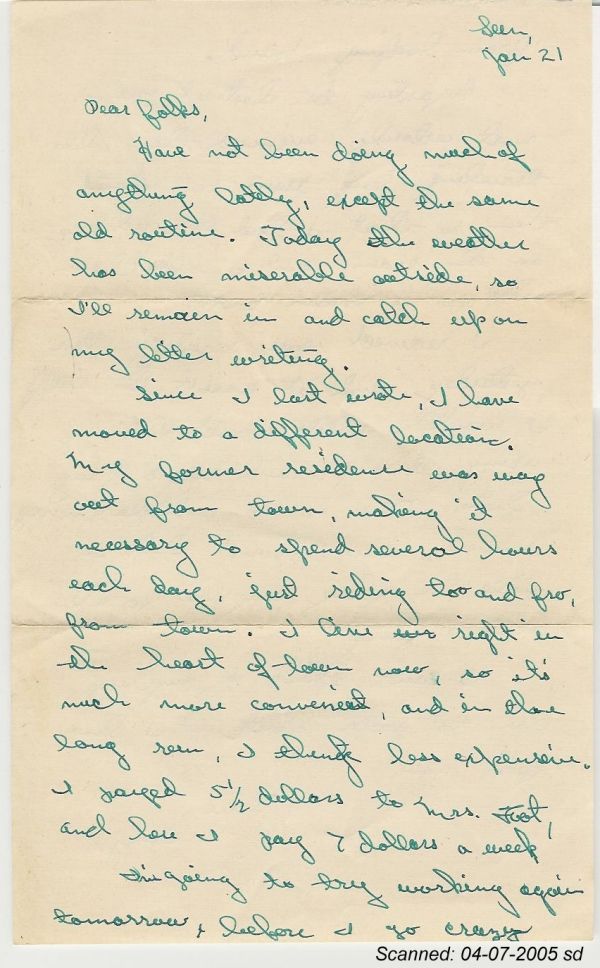 Sun,
Jan 21
Dear folks,
Have not been doing much of
anything lately, except the same
old routine. Today the weather
has been miserable outside, so
I'll remain in and catch up on
my letter writing.
Since I last wrote, I have
moved to a different location.
My former residence was way
out from town, making it
necessary to spend several hours
each day, just riding too and fro,
from town. I live right in
the heart of town now, so it's
much more convenient, and in the
long run, I think less expensive.
I payed 5 1/2 dollars to Mrs. Foot,
and here I pay 7 dollars a week
I'm going to try working again
tomorrow, before I go crazy
Scanned: 04-07-2005 sd